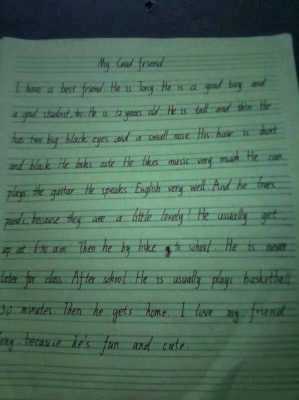 My Good friend
I have a best friend. He is Tony. He is a good boy and
a good student, too. He is 12 years old. He is tall and thin. He
has two big black eyes and a small nose. His hair is short
and black. He looks cute. He likes music very much. He can
plays the guitar. He speaks English very well. And he loves
pandas, because they are a little lovely! He usually get
up at 6:10 am. Then he by bike to school. He is never
later for class. After school. He is usually plays basketball
30 minutes. Then he gets home. I love my friend
because he's fun and cute.